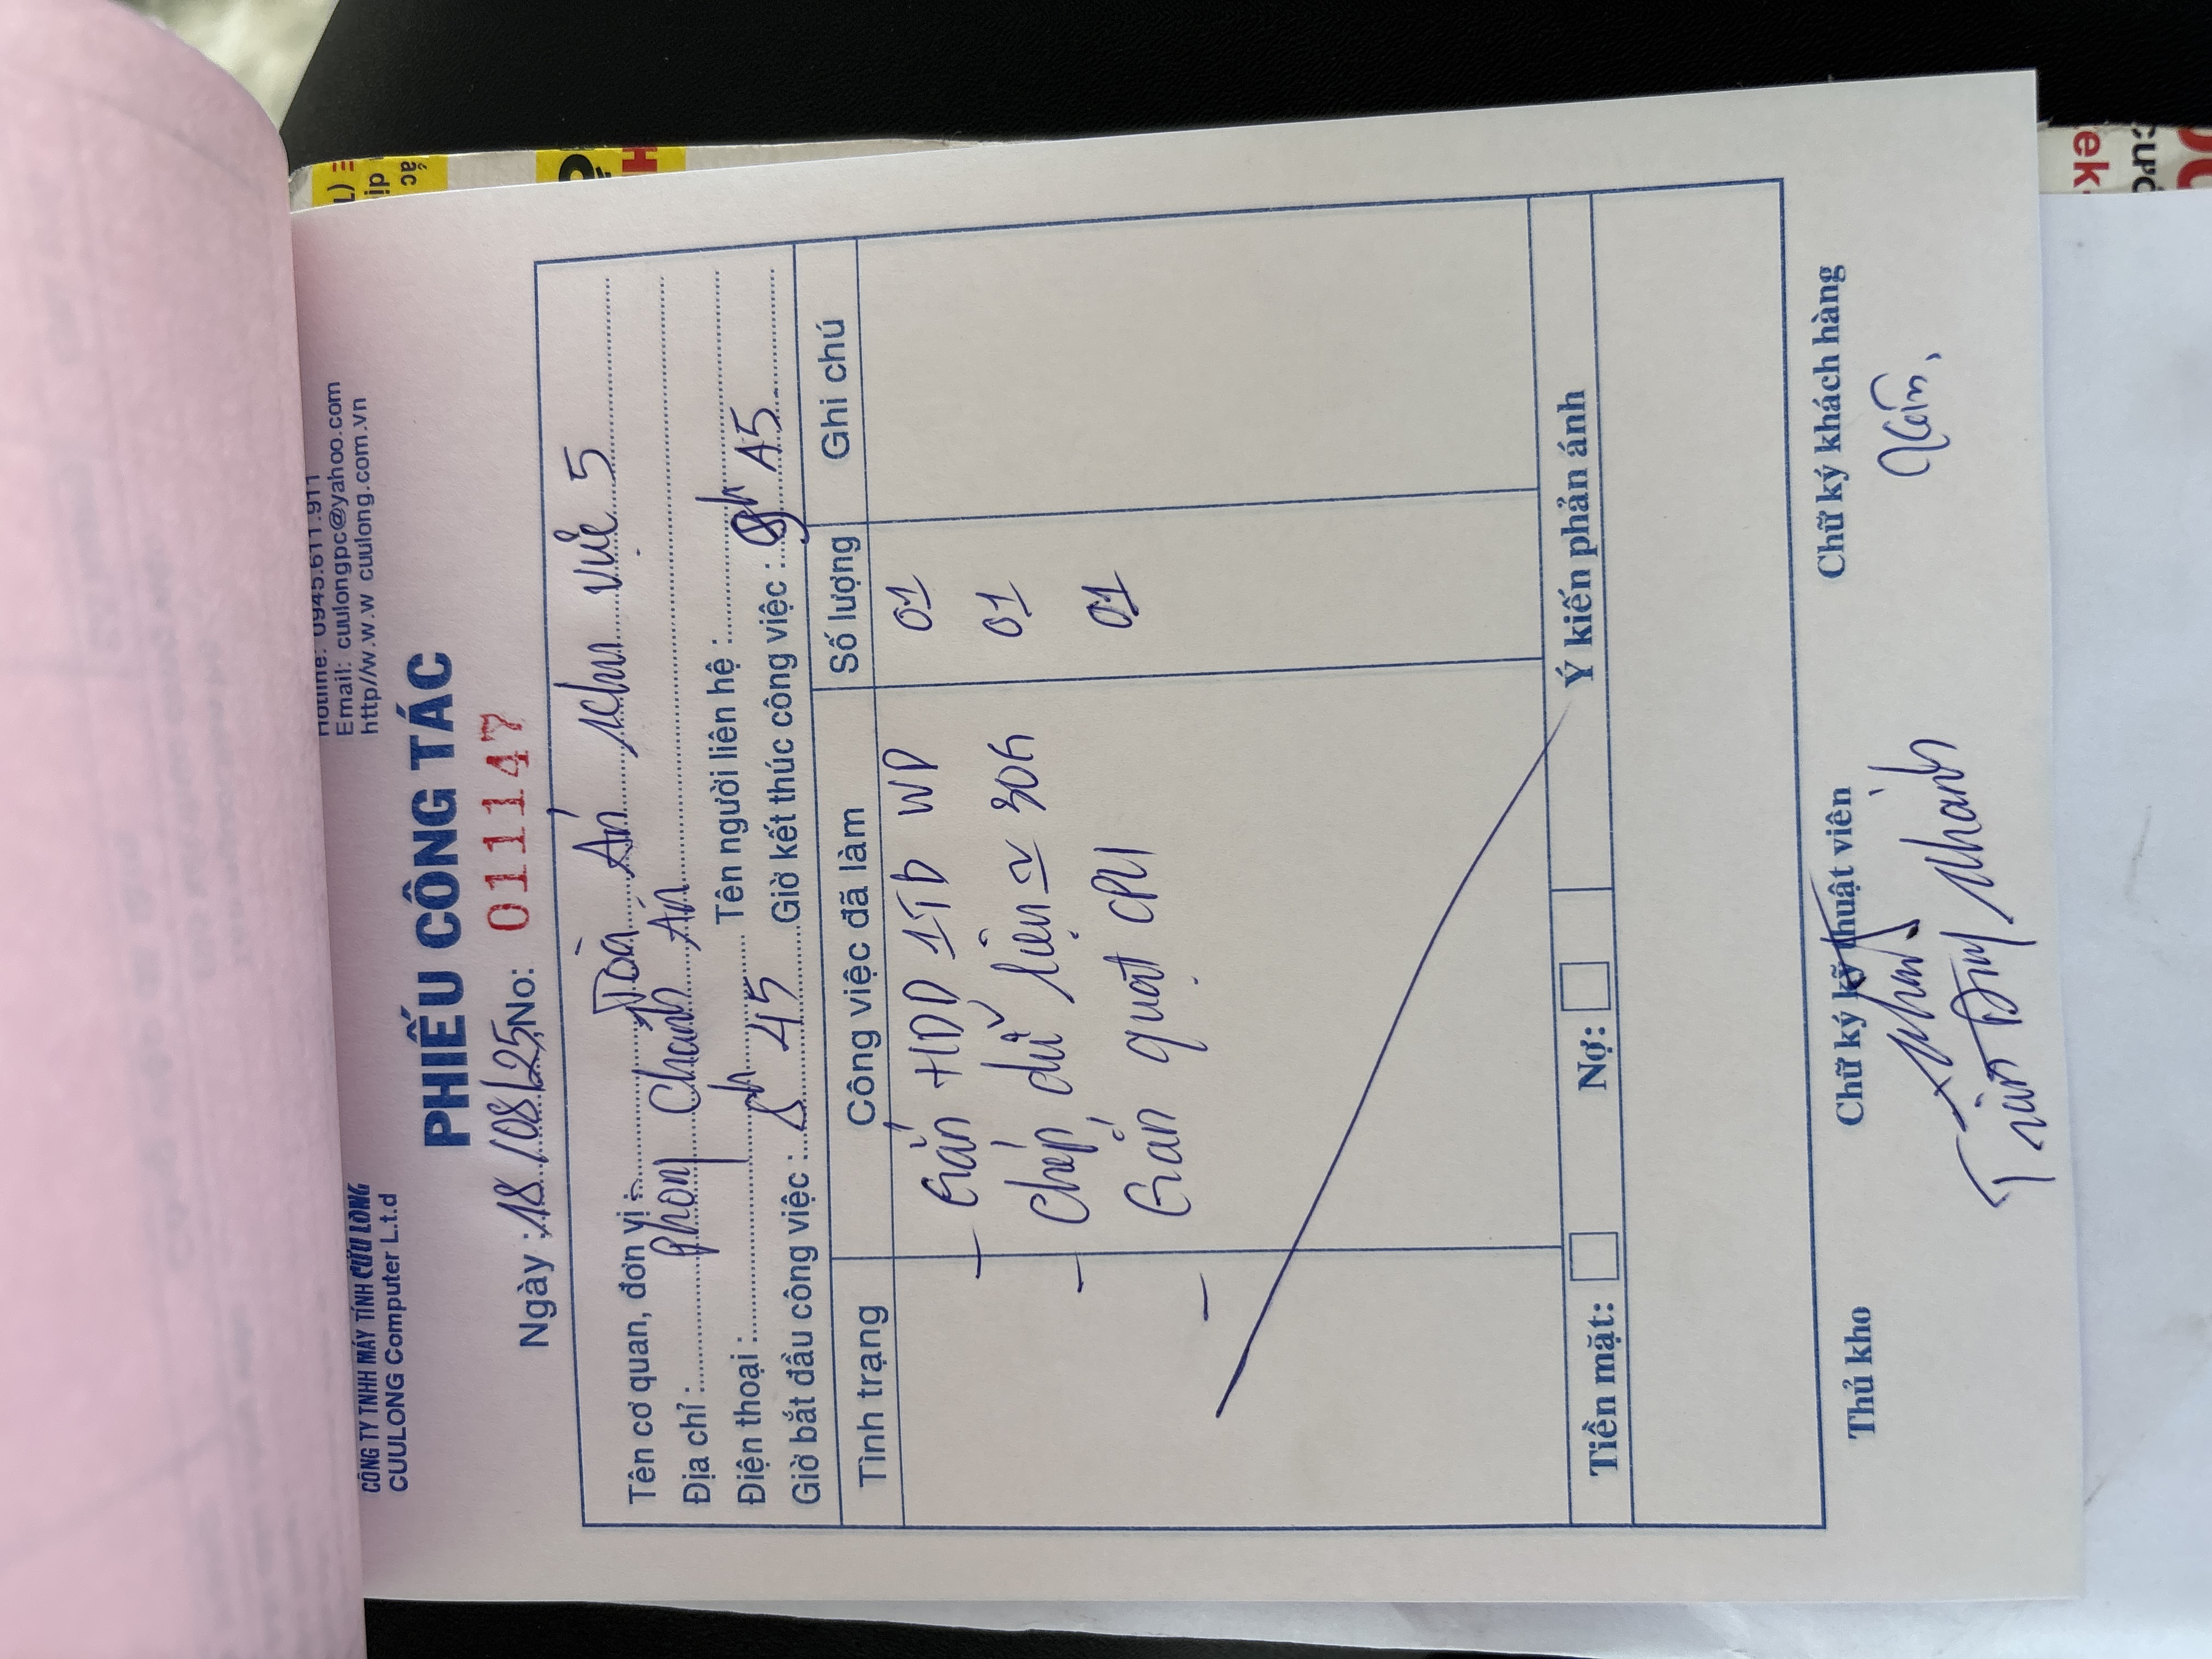 CÔNG TY TNHH MÁY TÍNH CỬU LONG
CUULONG Computer L.t.d
Hotline: 0945.611.911
Email: cuulongpc@yahoo.com
http//w.w.w cuulong.com.vn
PHIẾU CÔNG TÁC
Ngày: 18/08/25 No: 011147
Tên cơ quan, đơn vị: Tòa Án khu vực 5
Địa chỉ: Phòng Chánh Án
Điện thoại: Tên người liên hệ:
Giờ bắt đầu công việc: Giờ kết thúc công việc:
Tình trạng Công việc đã làm Số lượng Ghi chú
- Gắn HDD 1Tb WD 01
- Chép dữ liệu 01
- Gắn quạt CPU 01
Tiền mặt: Nợ: Ý kiến phản ánh
Thủ kho Chữ ký kỹ thuật viên Chữ ký khách hàng